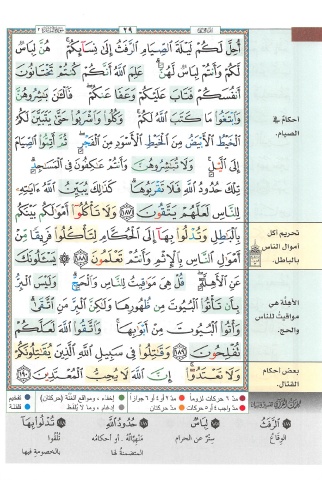 ٢٩
أُحِلَّ لَكُمْ لَيْلَةَ ٱلصِّيَامِ ٱلرَّفَثُ إِلَىٰ نِسَآئِكُمْ هُنَّ لِبَاسٌ
لَّكُمْ وَأَنتُمْ لِبَاسٌ لَّهُنَّ عَلِمَ ٱللَّهُ أَنَّكُمْ كُنتُمْ تَخْتَانُونَ
أَنفُسَكُمْ فَتَابَ عَلَيْكُمْ وَعَفَا عَنكُمْ فَٱلْـَٰٔنَ بَـٰشِرُوهُنَّ
وَٱبْتَغُوا۟ مَا كَتَبَ ٱللَّهُ لَكُمْ وَكُلُوا۟ وَٱشْرَبُوا۟ حَتَّىٰ يَتَبَيَّنَ لَكُمُ
ٱلْخَيْطُ ٱلْأَبْيَضُ مِنَ ٱلْخَيْطِ ٱلْأَسْوَدِ مِنَ ٱلْفَجْرِ ثُمَّ أَتِمُّوا۟ ٱلصِّيَامَ
إِلَى ٱلَّيْلِ وَلَا تُبَـٰشِرُوهُنَّ وَأَنتُمْ عَـٰكِفُونَ فِى ٱلْمَسَـٰجِدِ
تِلْكَ حُدُودُ ٱللَّهِ فَلَا تَقْرَبُوهَا كَذَٰلِكَ يُبَيِّنُ ٱللَّهُ ءَايَـٰتِهِۦ
لِلنَّاسِ لَعَلَّهُمْ يَتَّقُونَ ١٨٧ وَلَا تَأْكُلُوٓا۟ أَمْوَٰلَكُم بَيْنَكُم
بِٱلْبَـٰطِلِ وَتُدْلُوا۟ بِهَآ إِلَى ٱلْحُكَّامِ لِتَأْكُلُوا۟ فَرِيقًا مِّنْ
أَمْوَٰلِ ٱلنَّاسِ بِٱلْإِثْمِ وَأَنتُمْ تَعْلَمُونَ ١٨٨ يَسْـَٔلُونَكَ
عَنِ ٱلْأَهِلَّةِ قُلْ هِىَ مَوَٰقِيتُ لِلنَّاسِ وَٱلْحَجِّ وَلَيْسَ ٱلْبِرُّ
بِأَن تَأْتُوا۟ ٱلْبُيُوتَ مِن ظُهُورِهَا وَلَـٰكِنَّ ٱلْبِرَّ مَنِ ٱتَّقَىٰ
وَأْتُوا۟ ٱلْبُيُوتَ مِنْ أَبْوَٰبِهَا وَٱتَّقُوا۟ ٱللَّهَ لَعَلَّكُمْ
تُفْلِحُونَ ١٨٩ وَقَـٰتِلُوا۟ فِى سَبِيلِ ٱللَّهِ ٱلَّذِينَ يُقَـٰتِلُونَكُمْ
وَلَا تَعْتَدُوٓا۟ إِنَّ ٱللَّهَ لَا يُحِبُّ ٱلْمُعْتَدِينَ ١٩٠
أحكام في
الصيام.
تحريم أكل
أموال الناس
بالباطل.
الأهلة هي
مواقيت للناس
والحج.
بعض أحكام
القتال.
مدّ ٦ حركات لزوماً مدّ ٢ أو ٤ أو ٦ جوازاً إخفاء، ومواقع الغُنَّة (حركتان) تفخيم
مدّ واجب ٤ أو ٥ حركات مدّ حركتان إدغام، وما لا يُلفظ قلقلة
ٱلرَّفَثُ
الوِقَاعُ
لِبَاسٌ
سِترٌ عن الحرام
حُدُودُ ٱللَّهِ
مَنهيَّاتُه. أو أحكامُه
المتضمنة لها
تُدْلُوا۟ بِهَآ
تُلْقُوا
بالخصومة فيها